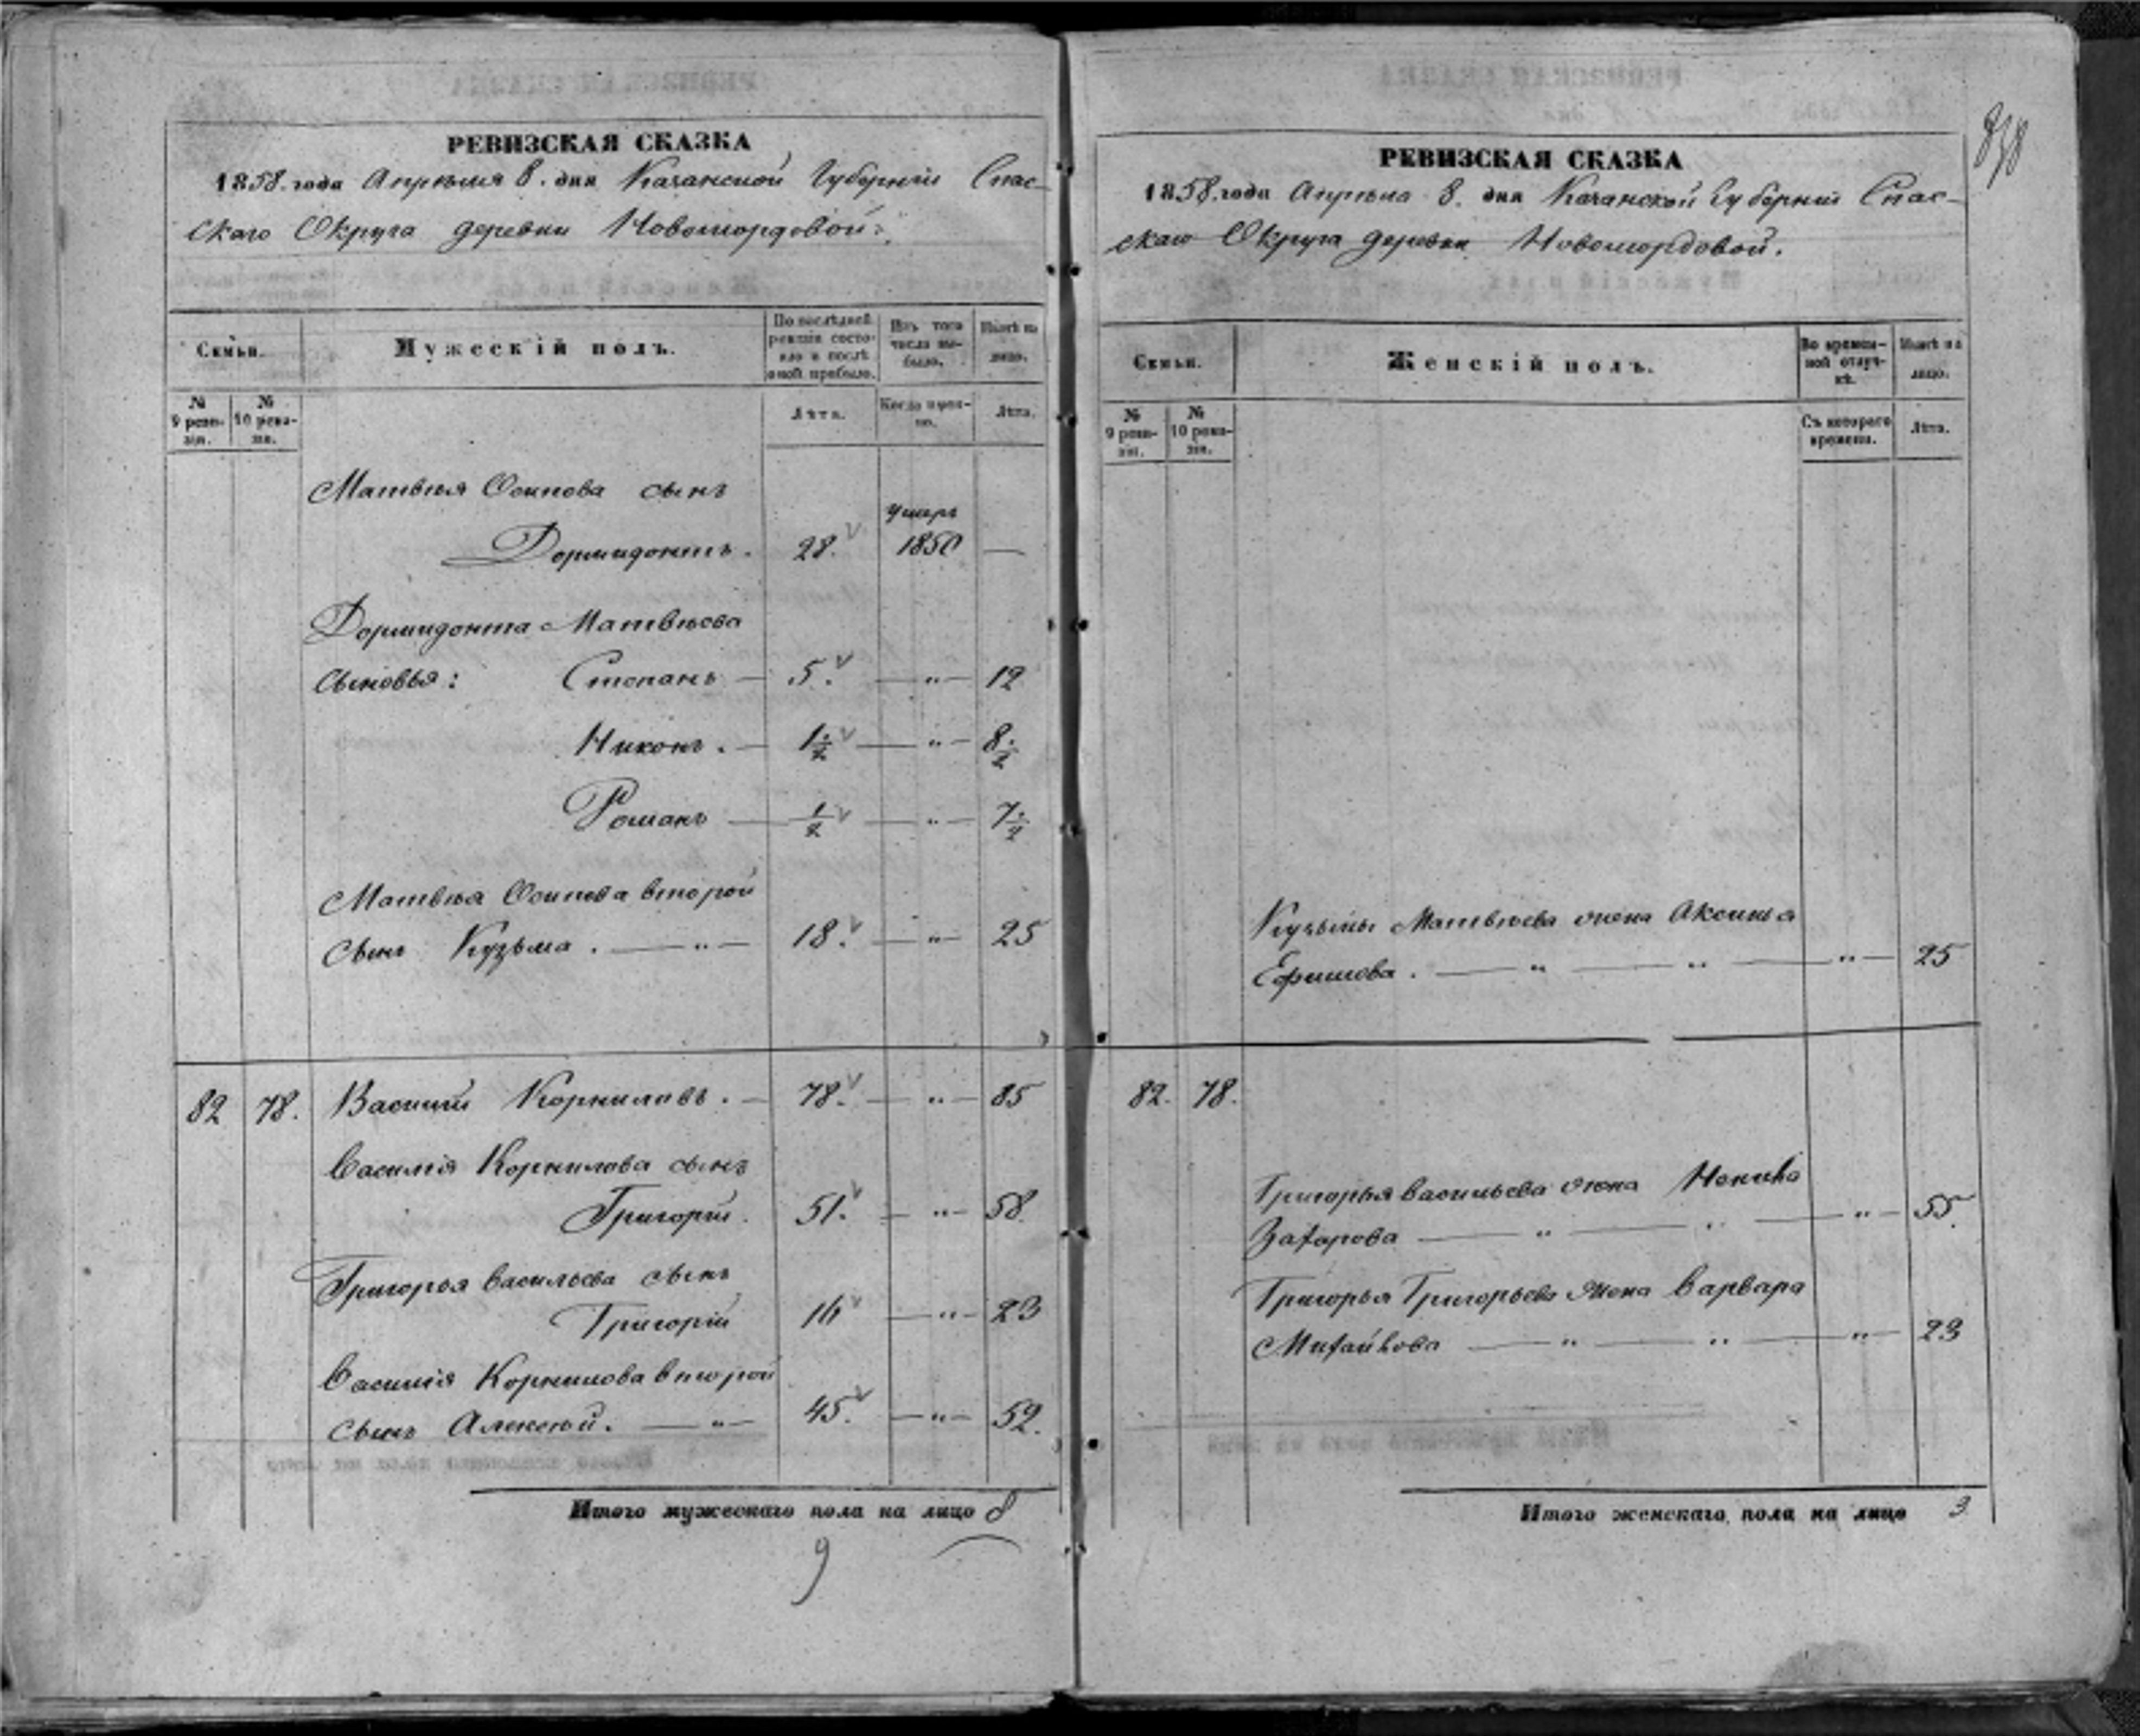 РЕВИЗСКАЯ СКАЗКА
1858. года Апрѣля 8. дня Казанской Губерніи Спас-
скаго Округа деревни Новомордовой.
Семьи.
Мужескій полъ.
По послѣдней ревизіи состо-яло и послѣ оной прибыло.
Изъ того числа вы-было.
Нынѣ на лицо.
№ 9 реви-зіи.
№ 10 реви-зіи.
Лѣта.
Когда имен-но.
Лѣта.
Матвѣя Осипова сынъ
умеръ
Дормидонтъ. 28. 1850 —
Дормидонта Матвѣева
сыновья: Степанъ — 5. — „ — 12
Никонъ. — 1 1/2 — „ — 8 1/2
Романъ — 1/2 — „ — 7 1/2
Матвѣя Осипова второй
сынъ Кузьма. — „ — 18. — „ — 25
82 78. Василій Корниловъ. — 78. — „ — 85
Василія Корнилова сынъ
Григорій. 51. — „ — 58
Григорья Васильева сынъ
Григорій 16 — „ — 23
Василія Корнилова второй
сынъ Алексѣй. — „ — 45. — „ — 52.
Итого мужескаго пола на лицо 8
9
РЕВИЗСКАЯ СКАЗКА
1858. года Апрѣля 8. дня Казанской Губерніи Спас-
скаго Округа деревни Новомордовой.
Семьи.
Женскій полъ.
Во времен-ной отлуч-кѣ.
Нынѣ на лицо.
№ 9 реви-зіи.
№ 10 реви-зіи.
Съ котораго времени.
Лѣта.
Кузьмы Матвѣева жена Аксинья
Ефимова. — „ — „ — „ — 25
82. 78.
Григорья Васильева жена
Захарова — „ — „ — „ — 55.
Григорья Григорьева жена Варвара
Михайлова — „ — „ — „ — 23
Итого женскаго пола на лицо 3